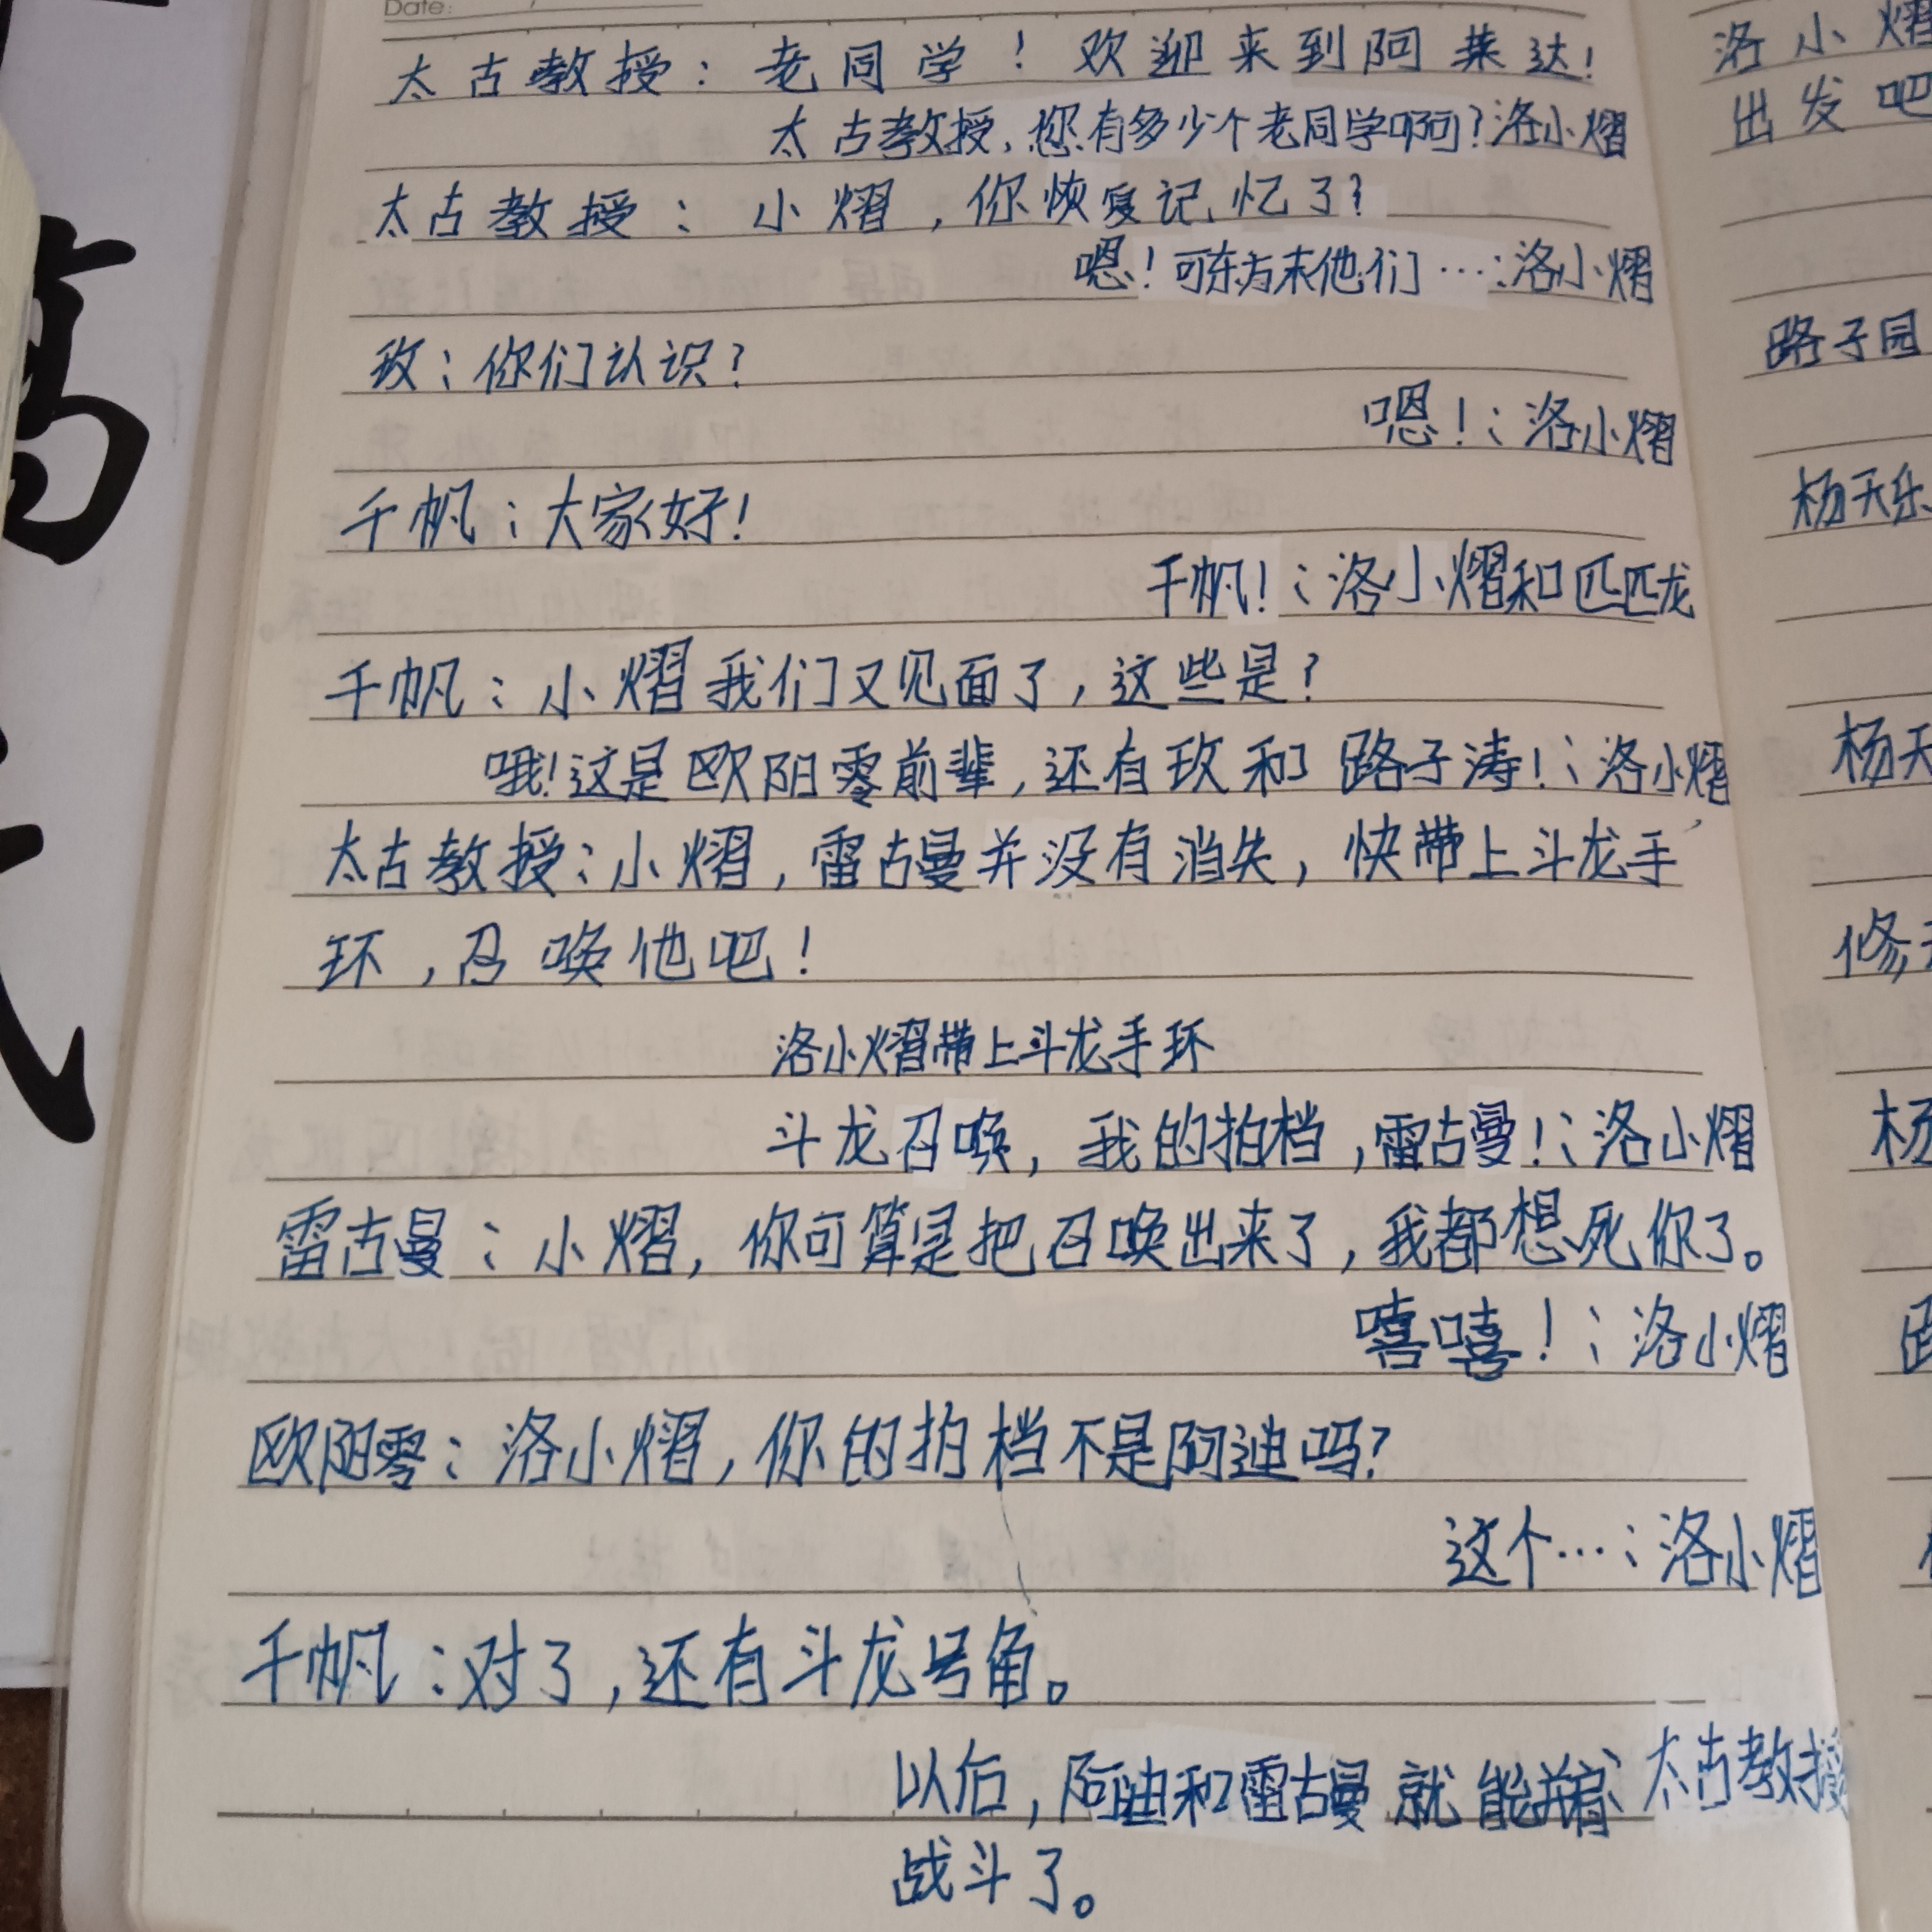 Date:
太古教授：老同学！欢迎来到阿莱达！
太古教授，您有多少个老同学啊？洛小熠
太古教授：小熠，你恢复记忆了？
嗯！可东方末他们…：洛小熠
玫：你们认识？
嗯！：洛小熠
千帆：大家好！
千帆！：洛小熠和匹匹龙
千帆：小熠我们又见面了，这些是？
哦！这是欧阳零前辈，还有玫和路子涛！：洛小熠
太古教授：小熠，雷古曼并没有消失，快带上斗龙手
环，召唤他吧！
洛小熠带上斗龙手环
斗龙召唤，我的拍档，雷古曼！：洛小熠
雷古曼：小熠，你可算是把召唤出来了，我都想死你了。
嘻嘻！：洛小熠
欧阳零：洛小熠，你的拍档不是阿迪吗？
这个…：洛小熠
千帆：对了，还有斗龙号角。
以后，阿迪和雷古曼就能并肩 太古教授
战斗了。
洛小熠
出发吧
路子园
杨天乐
杨天
修
杨